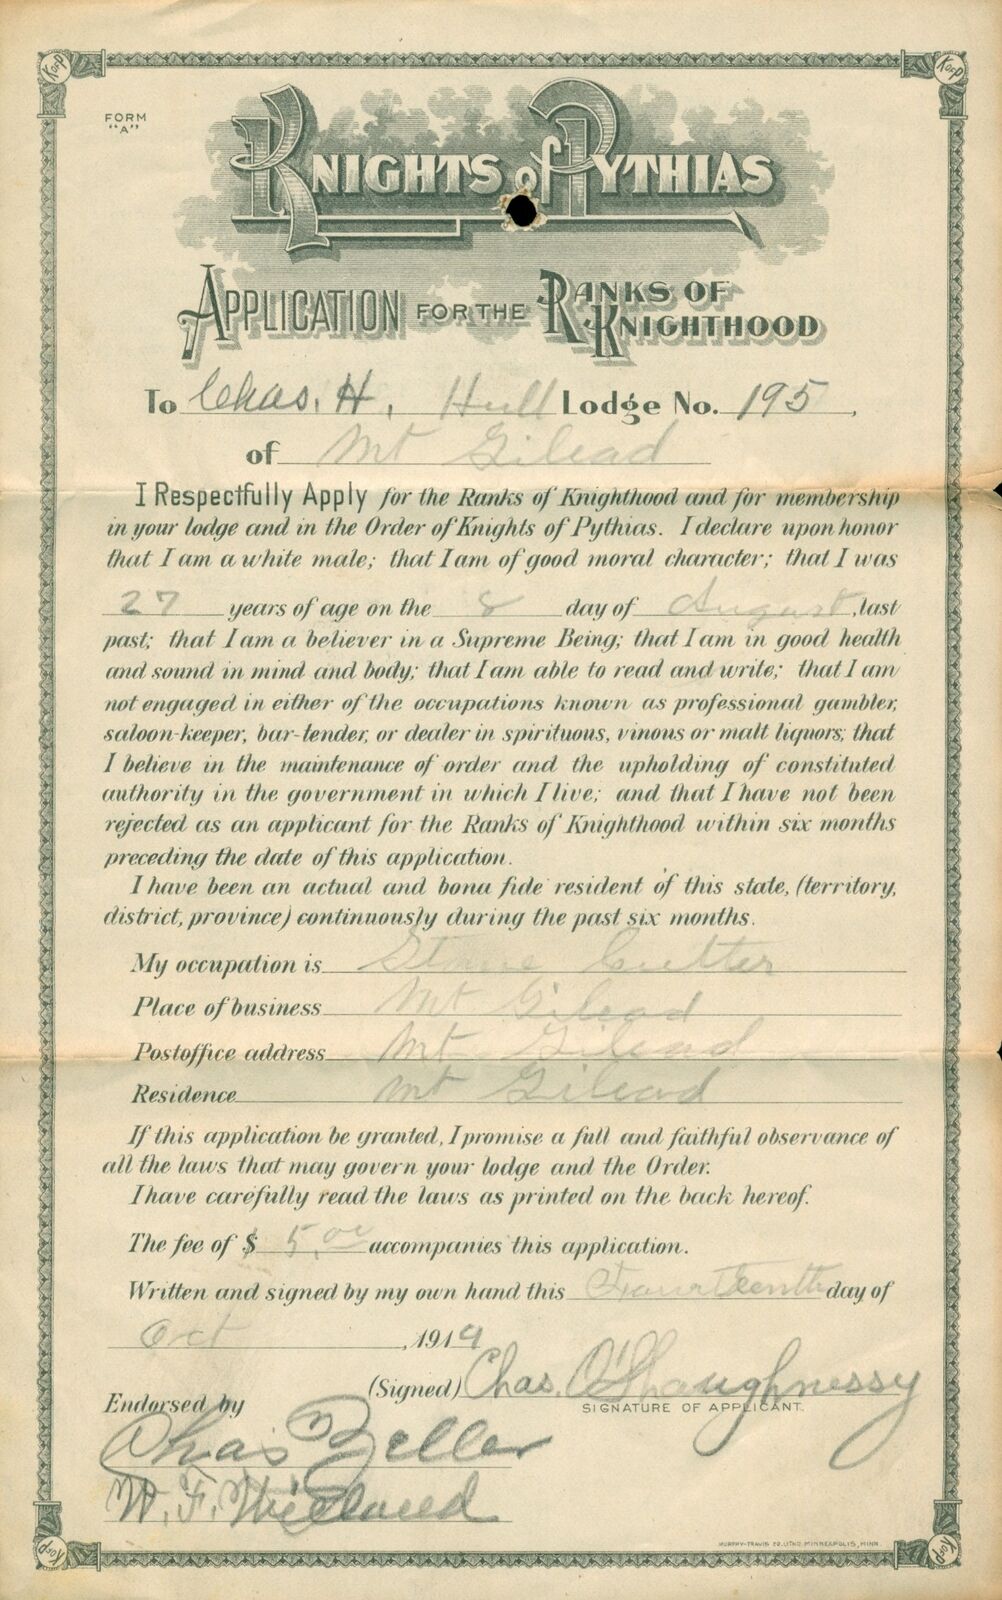 K of P
K of P
FORM
"A"
KNIGHTS of PYTHIAS
APPLICATION FOR THE RANKS OF KNIGHTHOOD
To Chas. H. Hull Lodge No. 195,
of Mt Gilead
I Respectfully Apply for the Ranks of Knighthood and for membership
in your lodge and in the Order of Knights of Pythias. I declare upon honor
that I am a white male; that I am of good moral character; that I was
27 years of age on the 8 day of August, last
past; that I am a believer in a Supreme Being; that I am in good health
and sound in mind and body; that I am able to read and write; that I am
not engaged in either of the occupations known as professional gambler,
saloon-keeper, bar-tender, or dealer in spirituous, vinous or malt liquors; that
I believe in the maintenance of order and the upholding of constituted
authority in the government in which I live; and that I have not been
rejected as an applicant for the Ranks of Knighthood within six months
preceding the date of this application.
I have been an actual and bona fide resident of this state, (territory,
district, province) continuously during the past six months.
My occupation is Stone Cutter
Place of business Mt Gilead
Postoffice address Mt Gilead
Residence Mt Gilead
If this application be granted, I promise a full and faithful observance of
all the laws that may govern your lodge and the Order.
I have carefully read the laws as printed on the back hereof.
The fee of $ 5.00 accompanies this application.
Written and signed by my own hand this Fourteenth day of
Oct, 1919
(Signed) Chas. O'Shaughnessy
SIGNATURE OF APPLICANT.
Endorsed by
Chas Zeller
W. F. Wieland
MURPHY-TRAVIS CO. LITHO. MINNEAPOLIS, MINN.
K of P
K of P